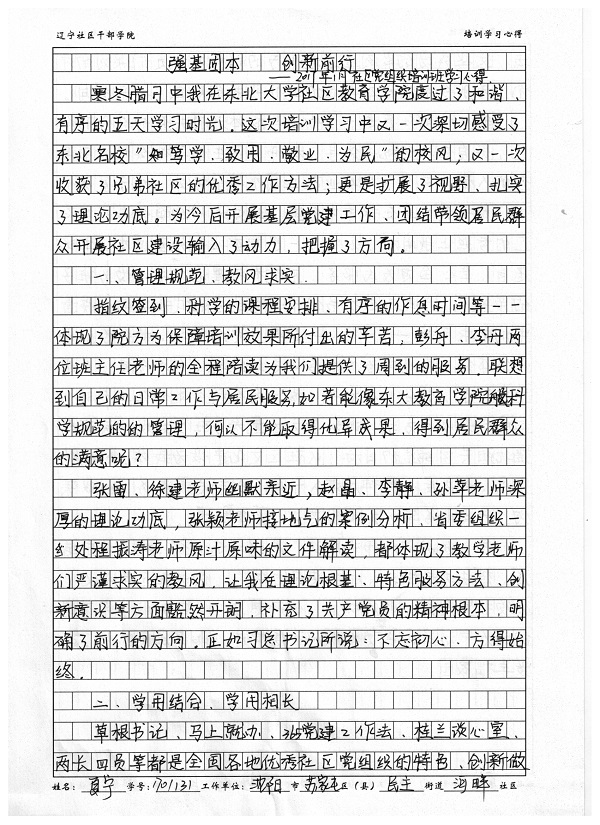 辽宁社区干部学院 培训学习心得
强基固本 创新前行
——2017年1月社区党组织培训班学习心得
寒冬腊月中我在东北大学社区教育学院度过了和谐、
有序的五天学习时光。这次培训学习中又一次深切感受了
东北名校"知笃学、致用、敬业、为民"的校风；又一次
收获了兄弟社区的优秀工作方法；更是扩展了视野、扎实
了理论功底。为今后开展基层党建工作、团结带领居民群
众开展社区建设输入了动力，把握了方向。
一、管理规范、教风求实.
指纹签到、科学的课程安排、有序的作息时间等一一
体现了院方为保障培训效果所付出的辛苦，彭丹、李丹两
位班主任老师的全程陪读为我们提供了周到的服务，联想
到自己的日常工作与居民服务，如若能像东大教育学院般科
学规范的的管理，何以不能取得优异成果，得到居民群众
的满意呢？
张雷、徐建老师幽默亲近，赵晶、李静、孙萍老师深
厚的理论功底，张颖老师接地气的案例分析、省委组织一
处程振涛老师原汁原味的文件解读，都体现了教学老师
们严谨求实的教风，让我在理论根基、特色服务方法、创
新意识等方面豁然开朗，补充了共产党员的精神根本，明
确了前行的方向。正如习总书记所说：不忘初心、方得始
终。
二、学用结合、学用相长
草根书记、马上就办、365党建工作法、桂兰谈心室、
两长四员等都是全国各地优秀社区党组织的特色、创新做
姓名：夏宁 学号：1701131 工作单位：沈阳 市 苏家屯 区（县） 民主 街道 海畔 社区